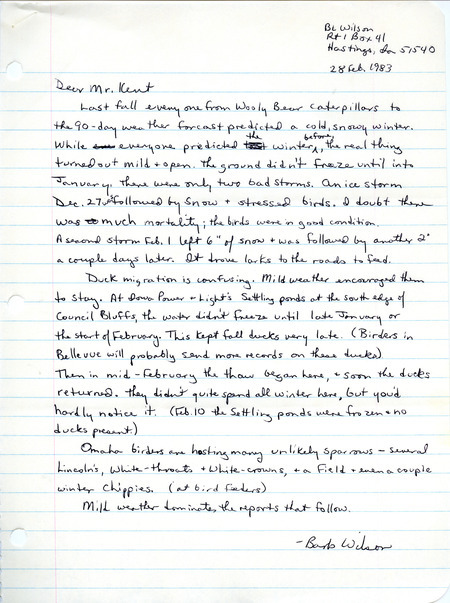 BL Wilson
Rt 1 Box 41
Hastings, Ia 51540
28 Feb, 1983
Dear Mr. Kent
Last fall everyone from Wooly Bear Caterpillars to
the 90-day weather forcast predicted a cold, snowy winter.
While everyone predicted the winter before, the real thing
turned out mild + open. The ground didn't freeze until into
January. There were only two bad storms. An ice storm
Dec. 27 followed by snow + stressed birds. I doubt there
was much mortality; the birds were in good condition.
A second storm Feb. 1 left 6" of snow + was followed by another 2"
a couple days later. It drove larks to the roads to feed.
Duck migration is confusing. Mild weather encouraged them
to stay. At Iowa Power + Light's Settling ponds at the south edge of
Council Bluffs, the water didn't freeze until late January or
the start of February. This kept fall ducks very late. (Birders in
Bellevue will probably send more records on these ducks)
Then in mid-February the thaw began here, + soon the ducks
returned. They didn't quite spend all winter here, but you'd
hardly notice it. (Feb. 10 the Settling ponds were frozen + no
ducks present.)
Omaha birders are hosting many unlikely sparrows - several
Lincoln's, White-throats + White-crowns, + a Field + even a couple
winter Chippies. (at bird feeders)
Mild weather dominates the reports that follow.
-Barb Wilson